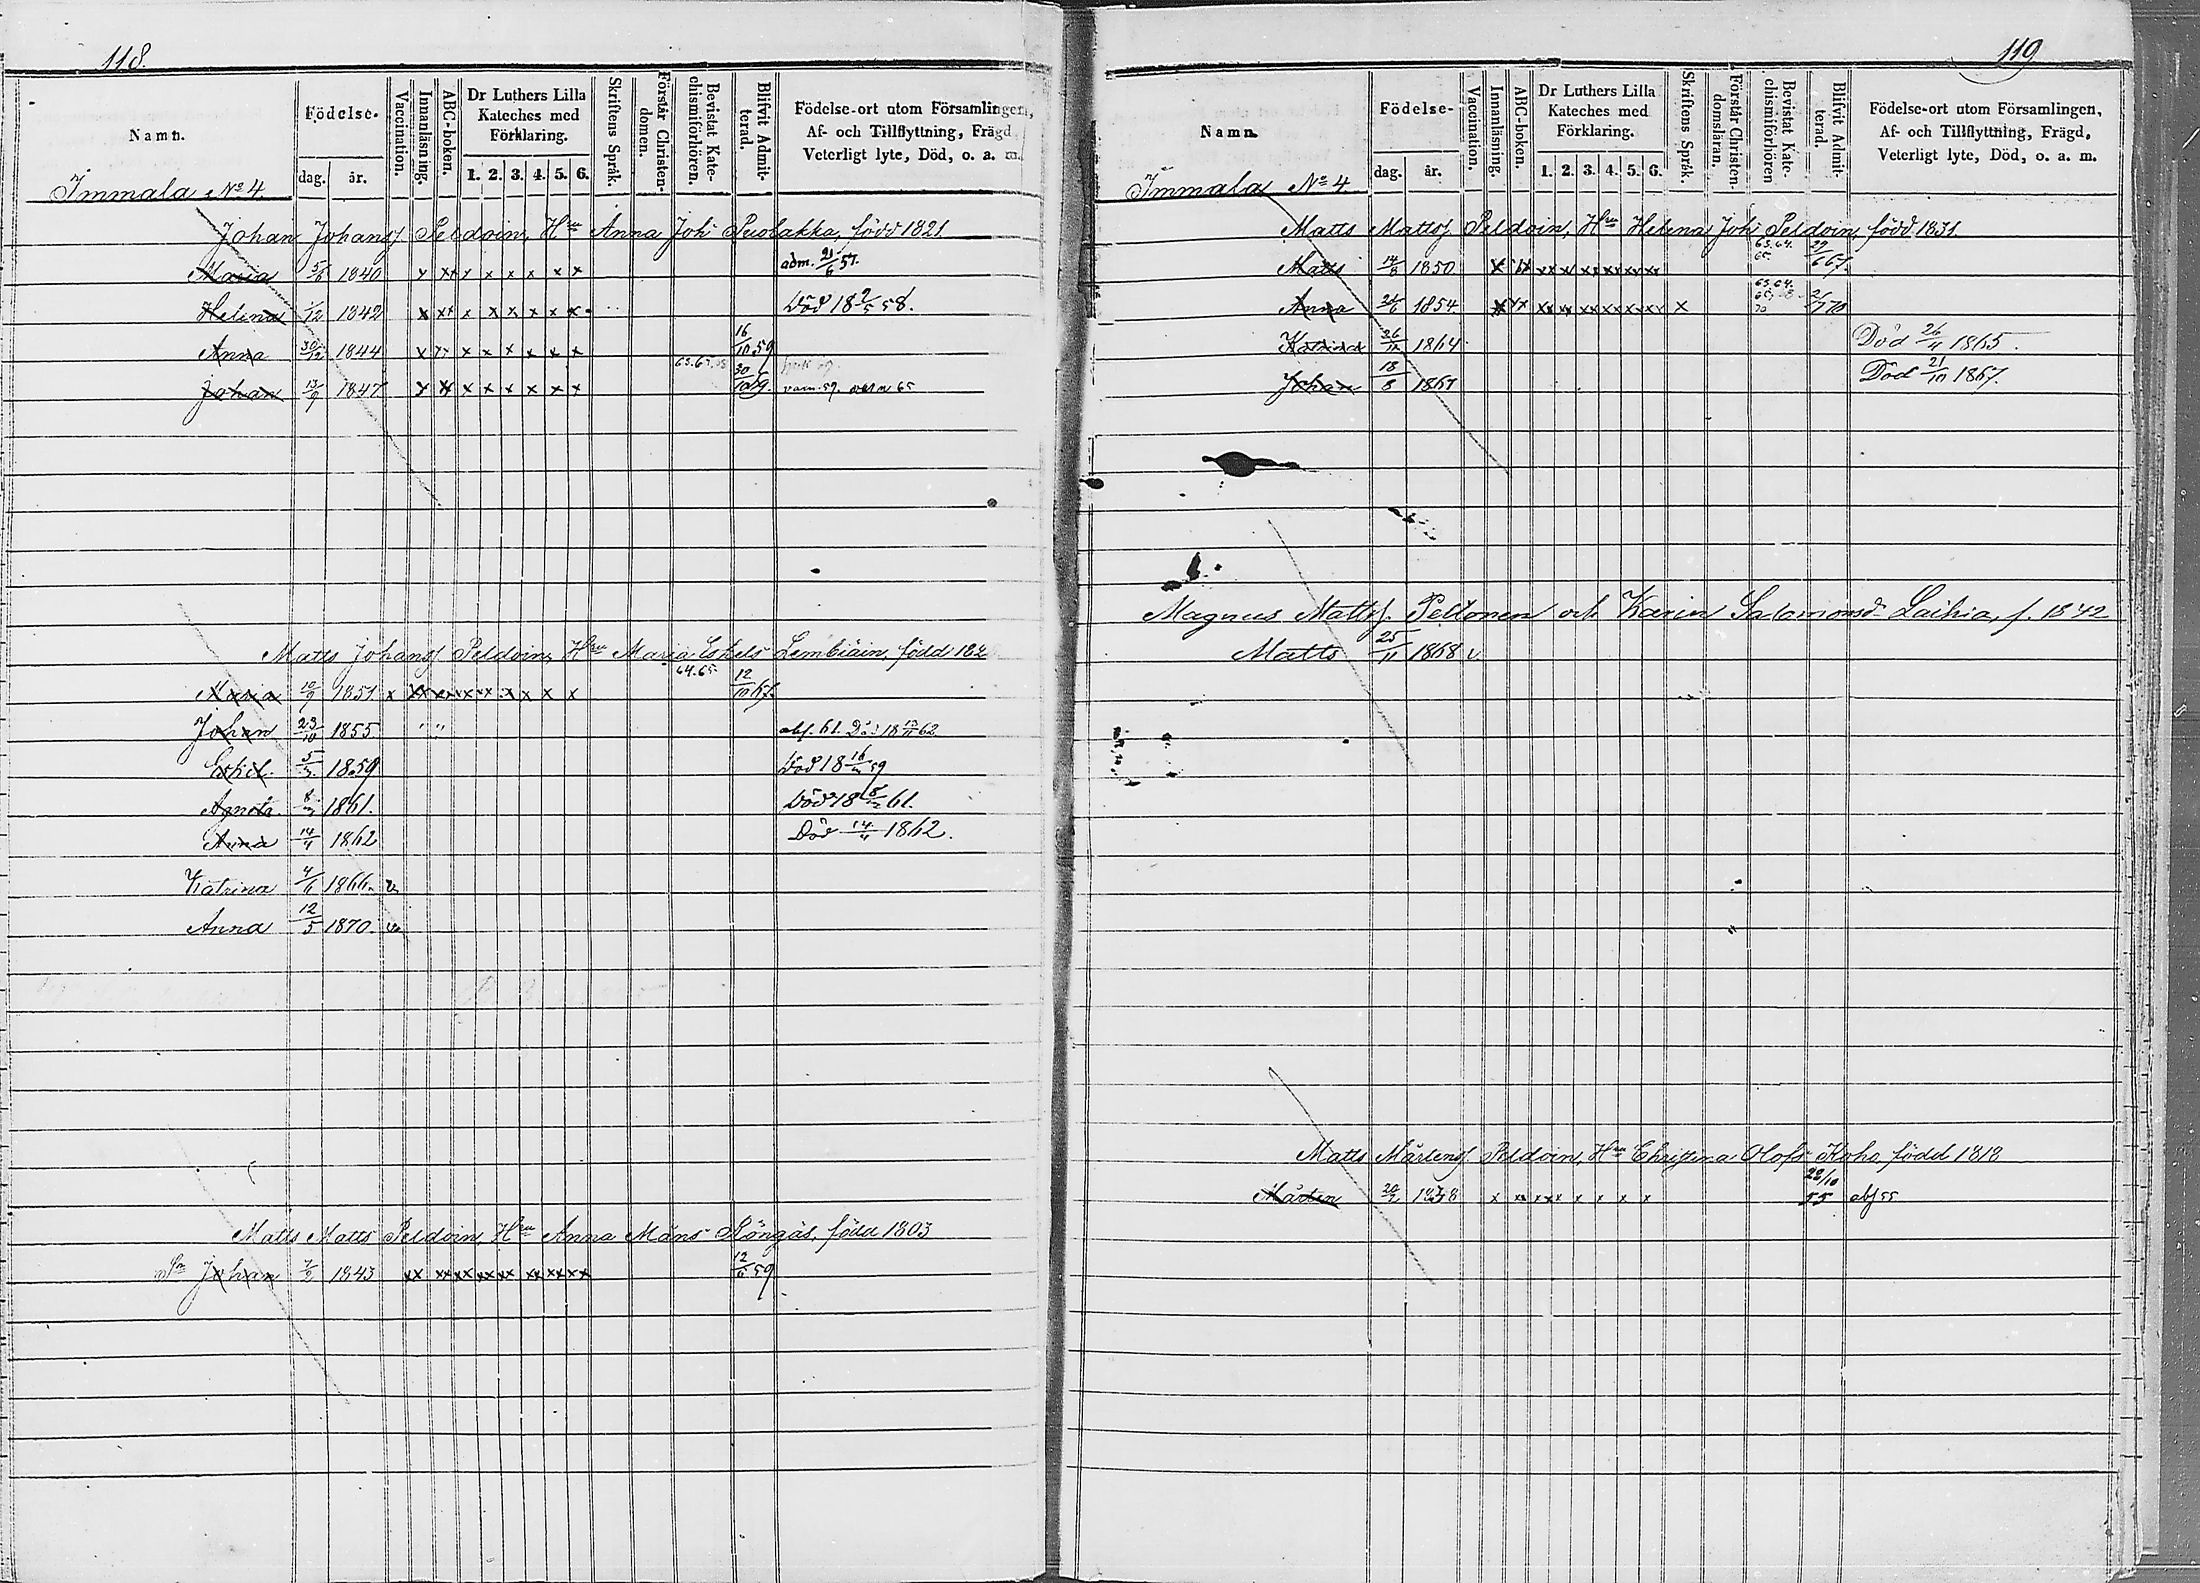 118.
Namn.
Födelse.
dag.
år.
Vaccination.
Innanläsning.
ABC-boken.
Dr Luthers Lilla
Kateches med
Förklaring.
1. 2. 3. 4. 5. 6.
Skriftens Språk.
Förstår Christen-
domen.
Bevistat Kate-
chismiförhören.
Blifvit Admit-
terad.
Födelse-ort utom Församlingen,
Af- och Tillflyttning, Frägd
Veterligt lyte, Död, o. a. m.
Immala No 4.
Johan Johansf Peldoin, Hru Anna Joh: Puolakka, född 1821.
Maria 5/6 1840 x xx x x x x x x adm. 21/6 57.
Helena 1/12 1842 x xx x x x x x x Död 18 2/5 58.
Anna 30/12 1844 x x x x x x x 16/10 59
Johan 13/9 1847 x x x x x x x x 30/10 varn 59. varn 65
Matts Johansf Peldoin, Hru Maria Eskels Lembiäin, född 182
Maria 10/9 1851 x xx xxx xx xx x x x x 64.65 12/10 67.
Johan 23/10 1855 " " abs. 61. Död 18 13/11 62
Eskel. 5/3 1859 Död 18 16/3 59
Agneta. 8/3 1861. Död 18 8/3 61.
Anna 14/4 1862 Död 14/4 1862.
Katrina 4/6 1866. v.
Anna 12/5 1870. v.
Matts Matts Peldoin, Hru Anna Måns Röngäs, född 1803
Johan 7/2 1843 xx xx xx xx xx xx xx xx 12/6 59
119
Namn.
Födelse-
dag.
år.
Vaccination.
Innanläsning.
ABC-boken.
Dr Luthers Lilla
Kateches med
Förklaring.
1. 2. 3. 4. 5. 6.
Skriftens Språk.
Förstår Christen-
domsläran.
Bevistat Kate-
chismiförhören
Blifvit Admit-
terad.
Födelse-ort utom Församlingen,
Af- och Tillflyttning, Frägd,
Veterligt lyte, Död, o. a. m.
Immala No 4.
Matts Mattsf Peldoin, Hru Helena Joh: Peldoin, född 1831.
Matts 14/8 1850 x xx xx xx xx xx xx xx 63.64. 65. 29/6 67.
Anna 24/6 1854 x xx xx xx xx xx xx xx x 63.64. 70
Katrina 26/12 1864 Död 26/11 1865.
Johan 18/8 1867 Död 21/10 1867.
Magnus Mattsf. Peltonen och Karin Salomonsd. Laihia, f. 1842
Matts 25/11 1868 v.
Matts Mårtensf. Peldoin, Hru Christina Olofs Koho, född 1818
Mårten 1838 x xx x xx x x x x 22/10 55 abs 55